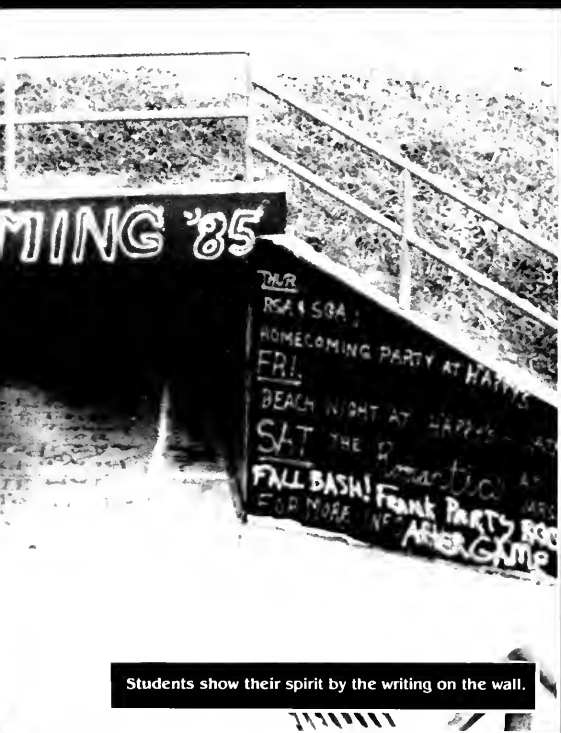 MING '85
THUR
RSA & SGA:
HOMECOMING PARTY AT HAPPY'S
FRI.
BEACH NIGHT AT HAPPY'S
SAT THE Romantics AT
FALL BASH! FRANK PARTY ROO
FOR MORE INF
AFTER GAME
Students show their spirit by the writing on the wall.